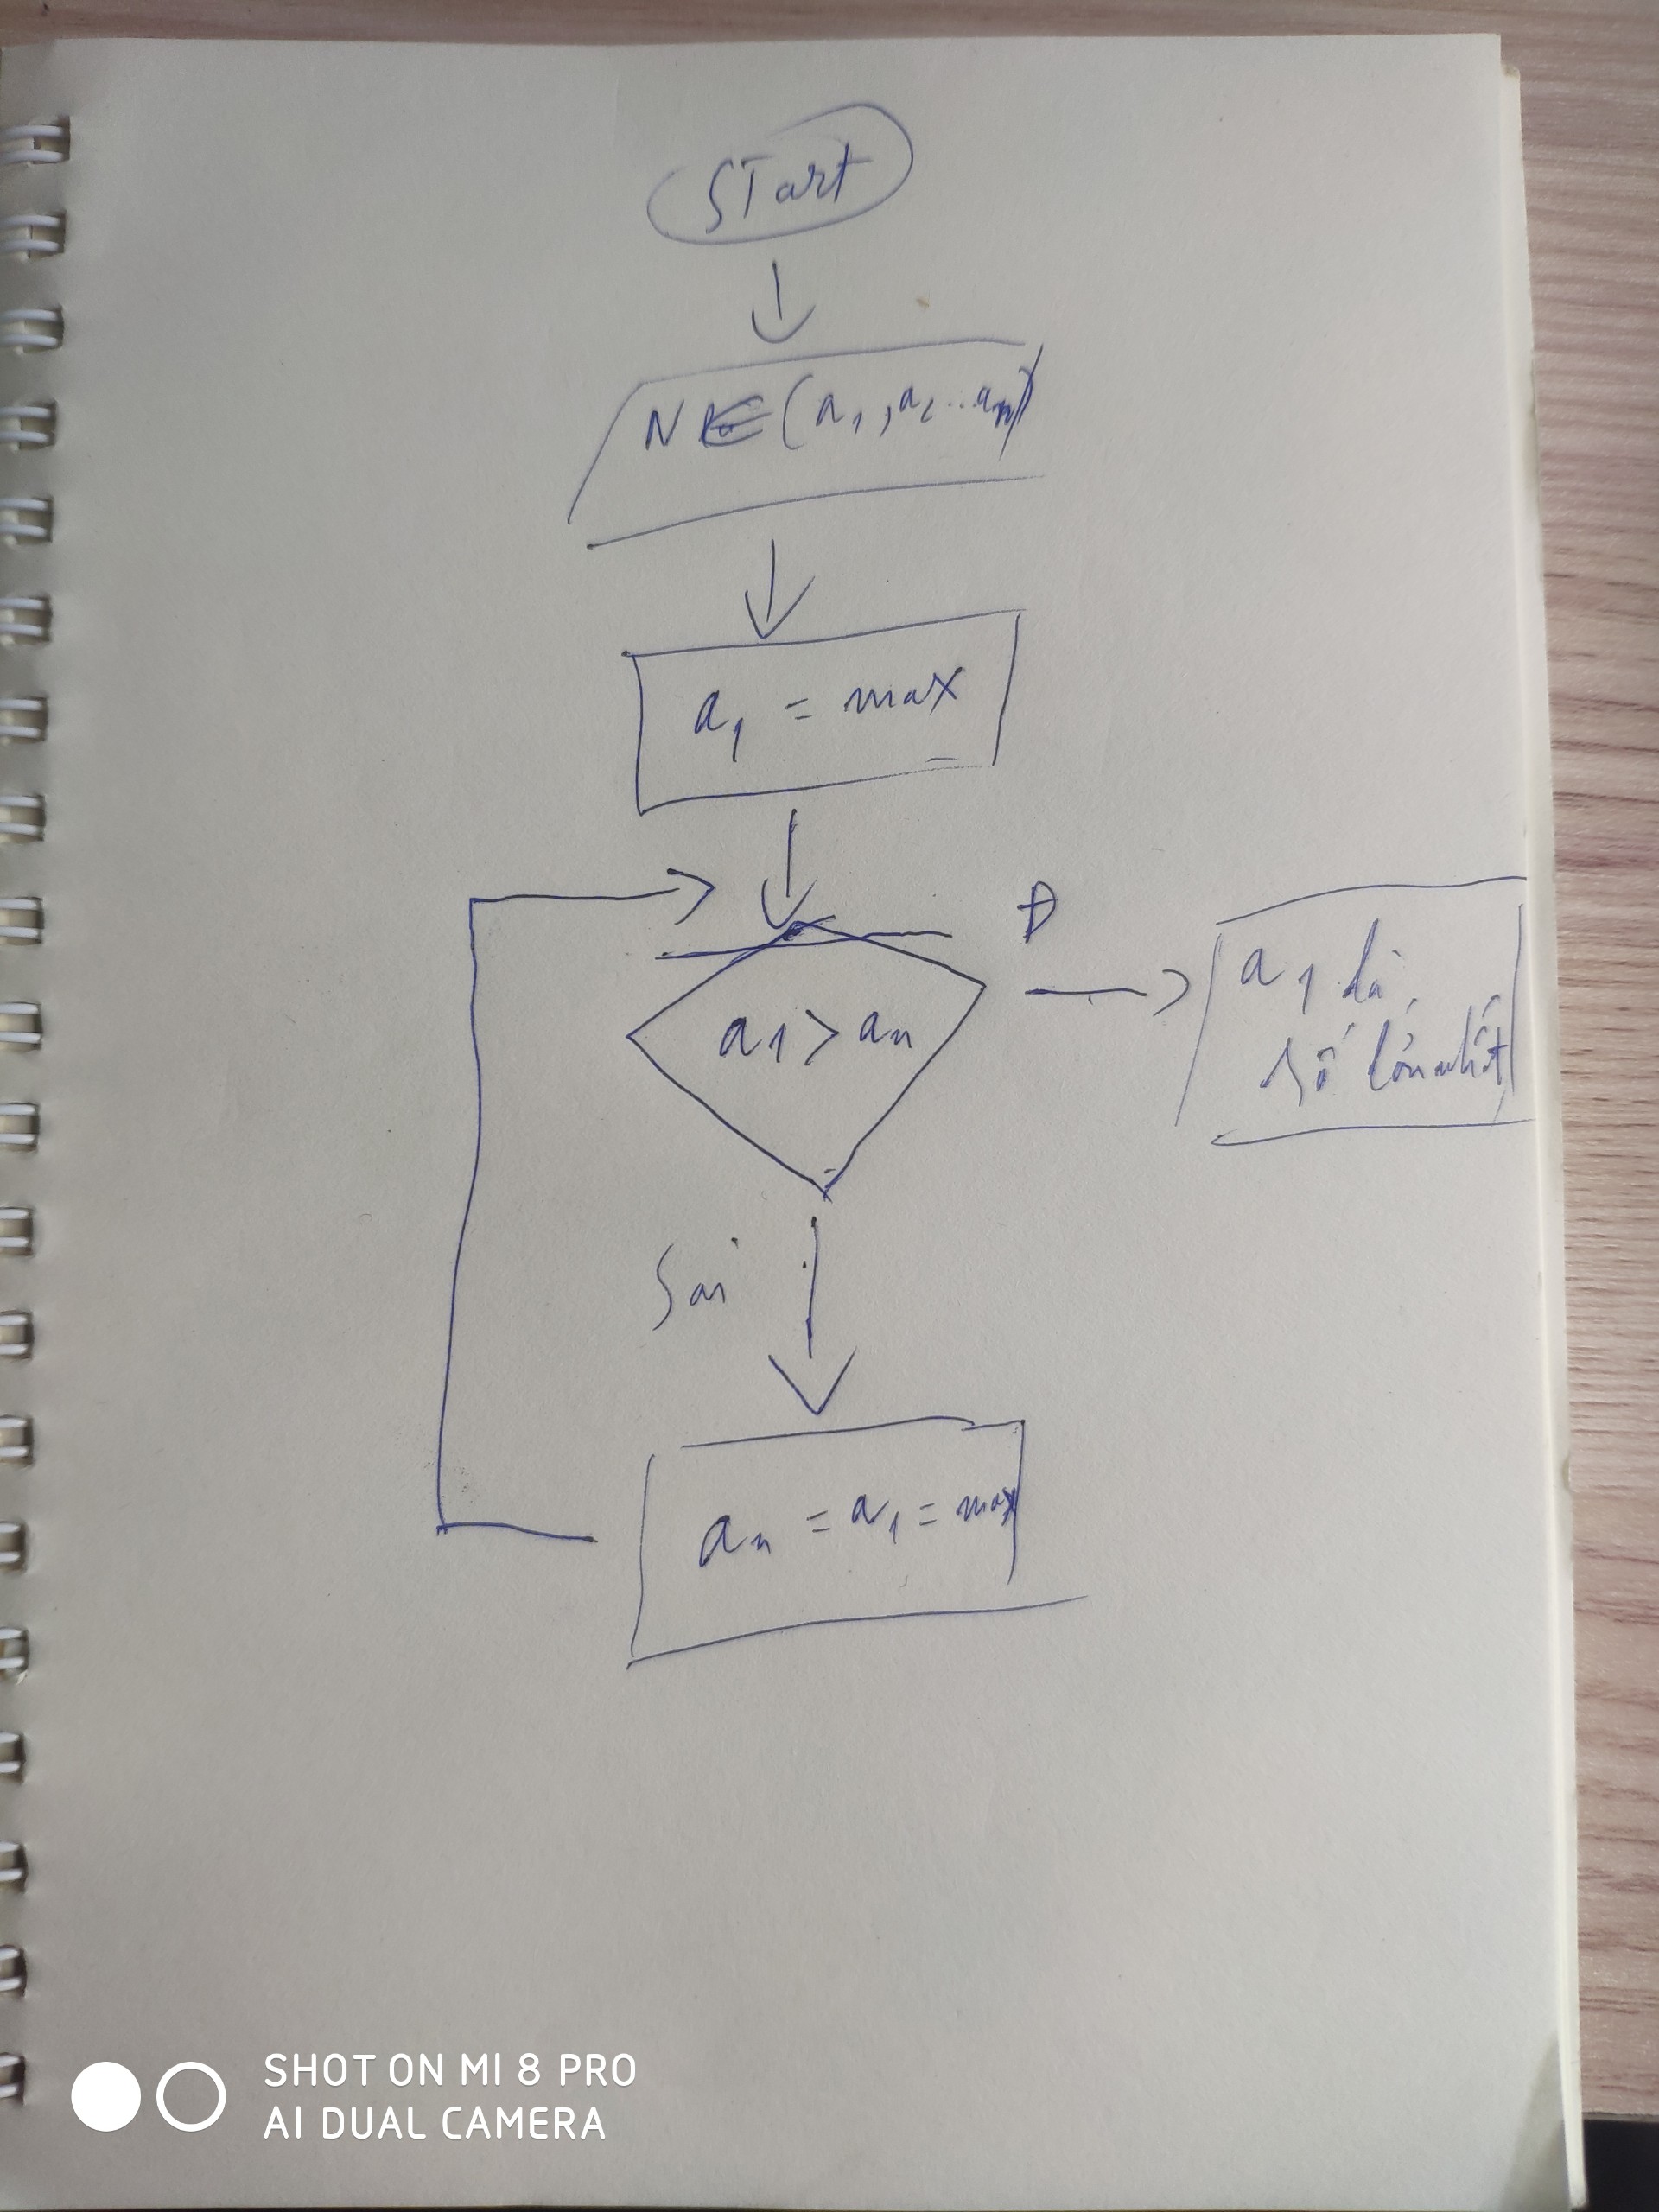 START
N ∈ (a1, a2 ... an)
a1 = max
a1 > an
Đ
a1 là
số lớn nhất
Sai
an = a1 = max
SHOT ON MI 8 PRO
AI DUAL CAMERA